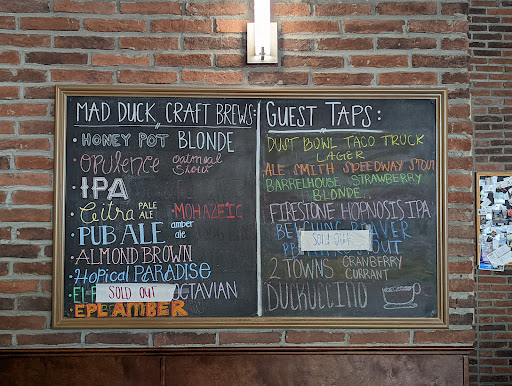 MAD DUCK CRAFT BREWS:
• HONEY POT BLONDE
• OPULENCE OATMEAL STOUT
• IPA
• Citra PALE ALE
• MOHAZEIC
• PUB ALE amber ale
• ALMOND BROWN
• Hopical PARADISE
• EL SOLD OUT OCTAVIAN
• EPL AMBER
GUEST TAPS:
DUST BOWL TACO TRUCK
LAGER
ALE SMITH SPEEDWAY STOUT
BARRELHOUSE STRAWBERRY
BLONDE
FIRESTONE HOPNOSIS IPA
SOLD OUT
2 TOWNS CRANBERRY
CURRANT
DUCKUCCINO